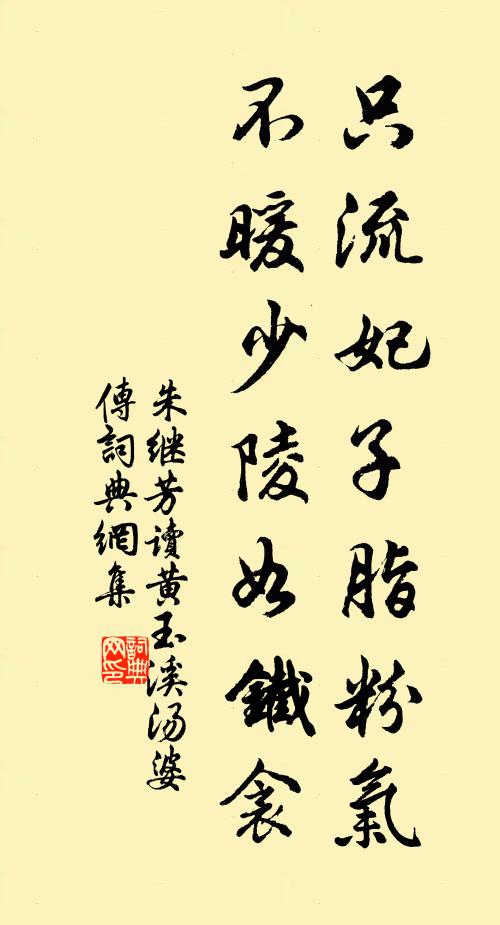 只流妃子脂粉氣
不暖少陵如鐵衾
朱继芳读黄玉溪汤婆
傳詞典網集
詞典网印